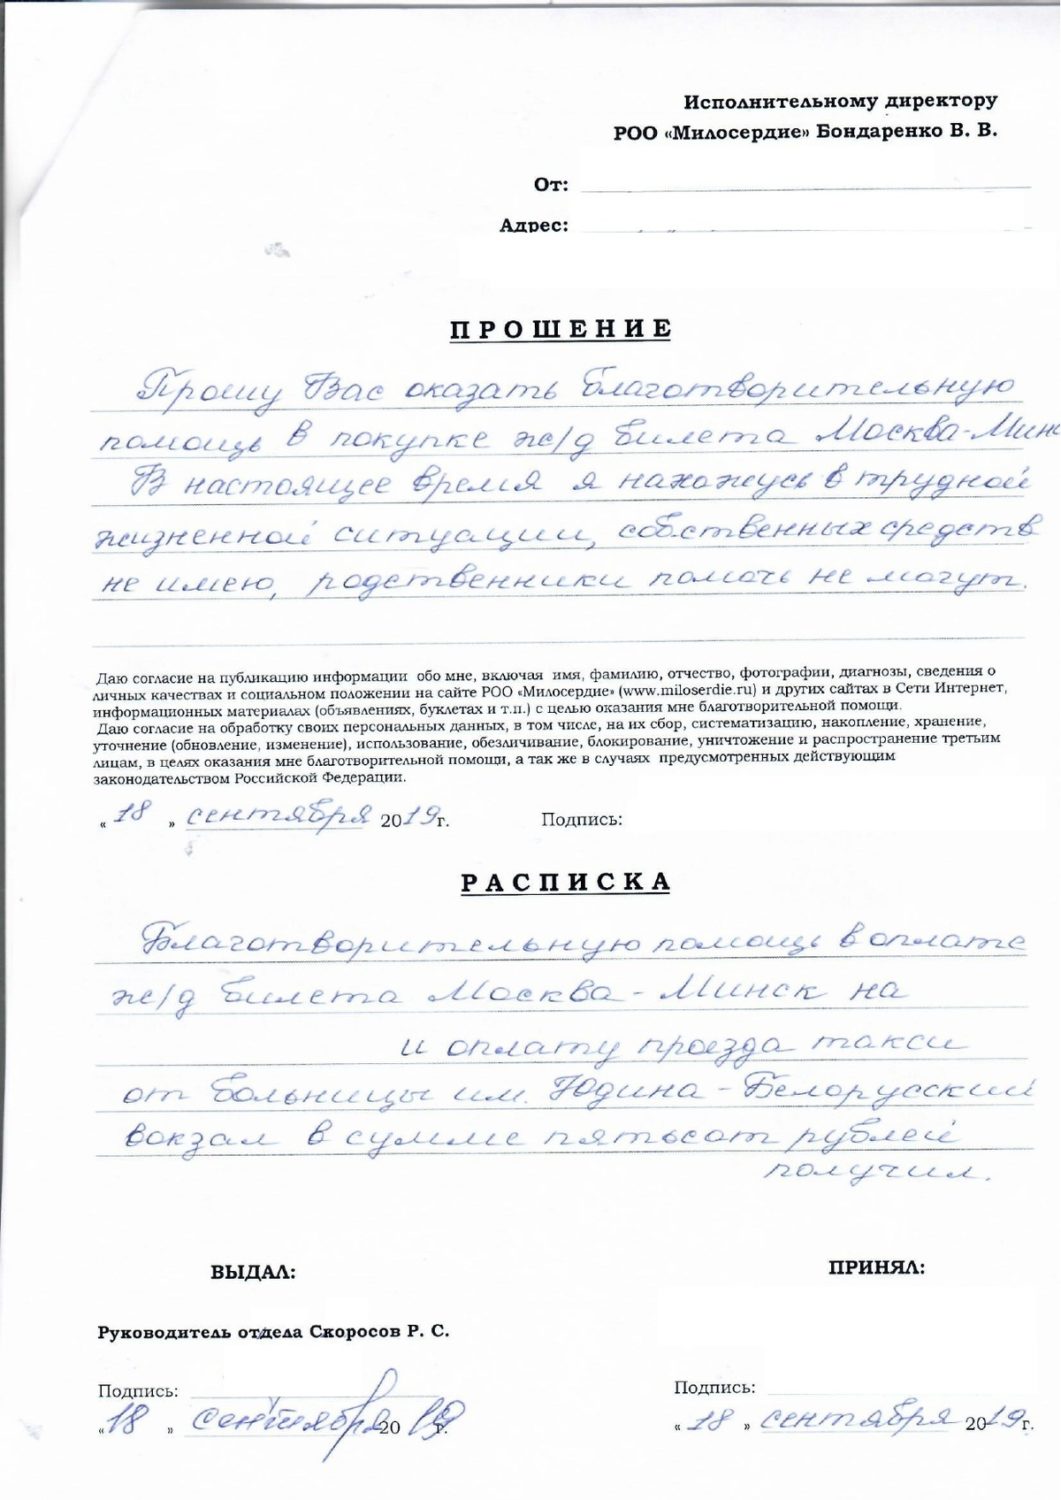 Исполнительному директору
РОО «Милосердие» Бондаренко В. В.
От:
Адрес:
ПРОШЕНИЕ
Прошу Вас оказать благотворительную
помощь в покупке ж/д билета Москва-Минс
В настоящее время я нахожусь в трудной
жизненной ситуации, собственных средств
не имею, родственники помочь не могут.
Даю согласие на публикацию информации обо мне, включая имя, фамилию, отчество, фотографии, диагнозы, сведения о
личных качествах и социальном положении на сайте РОО «Милосердие» (www.miloserdie.ru) и других сайтах в Сети Интернет,
информационных материалах (объявлениях, буклетах и т.п.) с целью оказания мне благотворительной помощи.
Даю согласие на обработку своих персональных данных, в том числе, на их сбор, систематизацию, накопление, хранение,
уточнение (обновление, изменение), использование, обезличивание, блокирование, уничтожение и распространение третьим
лицам, в целях оказания мне благотворительной помощи, а так же в случаях предусмотренных действующим
законодательством Российской Федерации.
«18» сентября 2019г. Подпись:
РАСПИСКА
Благотворительную помощь в оплате
ж/д билета Москва - Минск на
и оплату проезда такси
от больницы им. Юдина - Белорусский
вокзал в сумме пятьсот рублей
получил.
ВЫДАЛ: ПРИНЯЛ:
Руководитель отдела Скоросов Р. С.
Подпись: Подпись:
«18» сентября 2019г. «18» сентября 2019г.